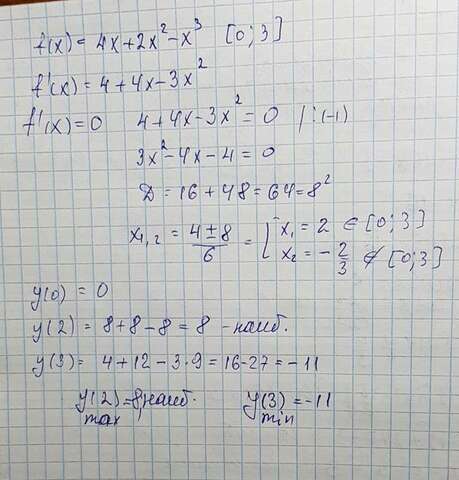 f(x) = 4x + 2x² - x³ [0; 3]
f'(x) = 4 + 4x - 3x²
f'(x) = 0 4 + 4x - 3x² = 0 / : (-1)
3x² - 4x - 4 = 0
D = 16 + 48 = 64 = 8²
x₁,₂ = (4 ± 8)/6 = [ x₁ = 2 ∈ [0; 3]
x₂ = -2/3 ∉ [0; 3]
y(0) = 0
y(2) = 8 + 8 - 8 = 8 - наиб.
y(3) = 4 + 12 - 3·9 = 16 - 27 = -11
y(2) = 8, наиб. y(3) = -11
max min